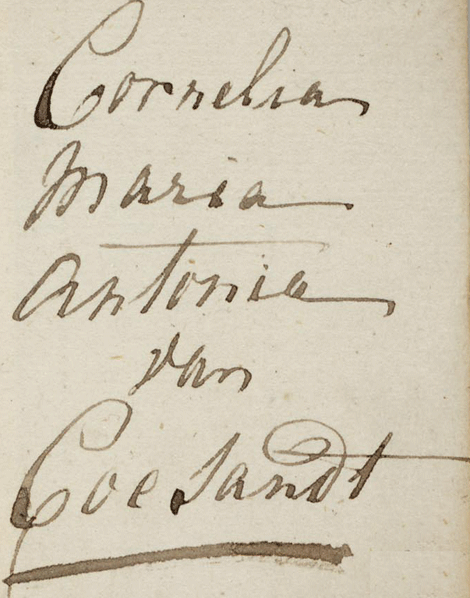 Cornelia
Maria
Antonia
van
Coesandt